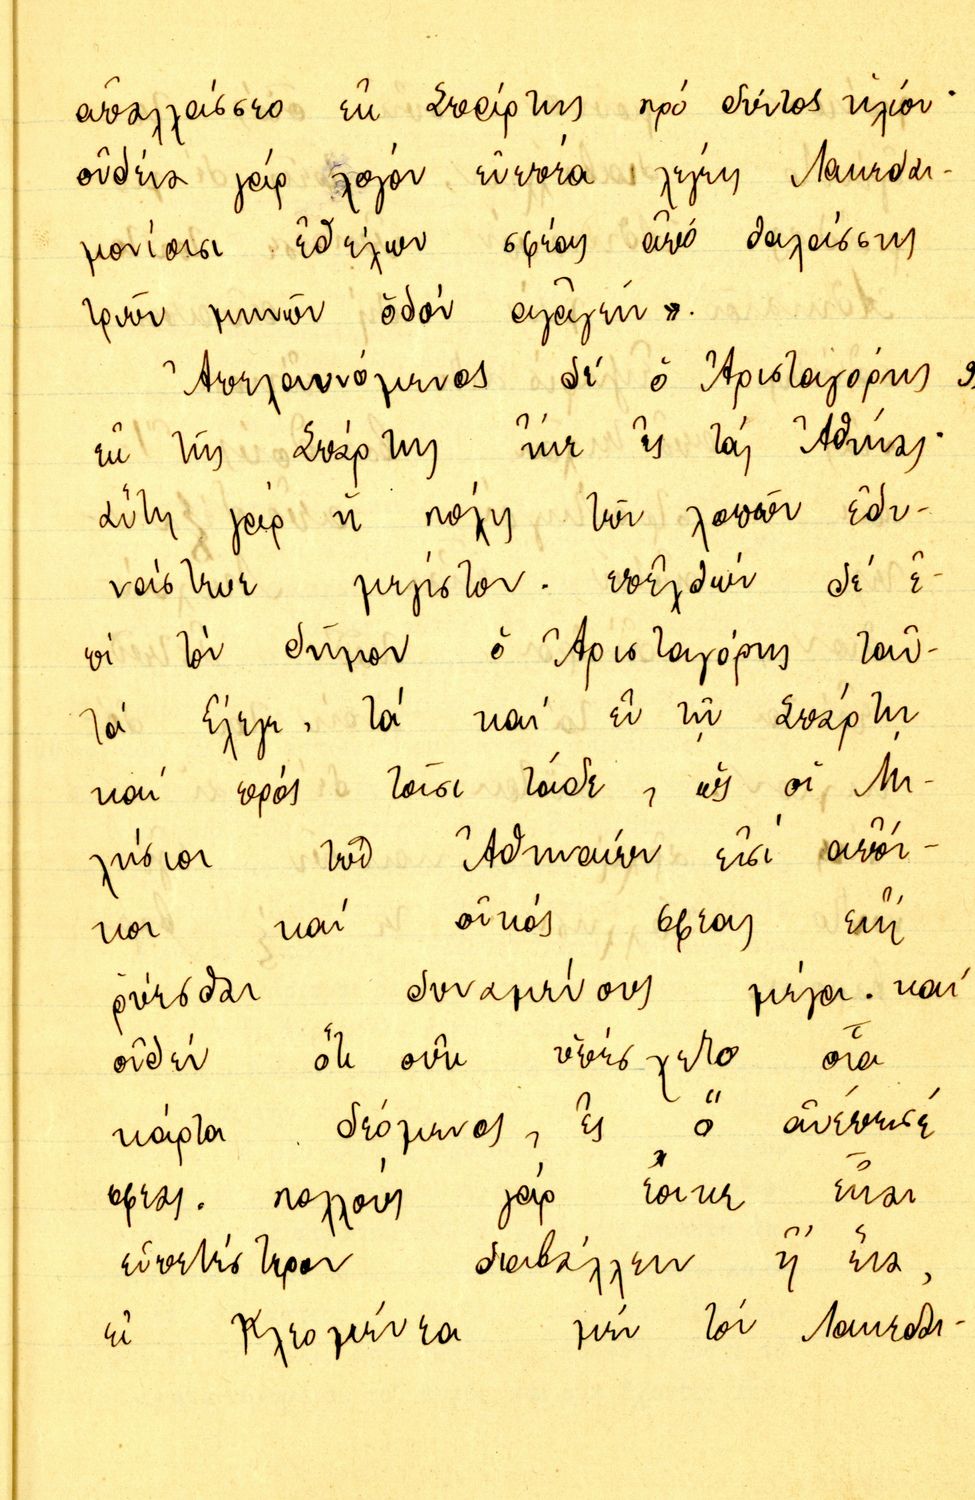 ἀπαλλάσσεο ἐκ Σπάρτης πρό δύντος ἡλίου·
οὐδένα γάρ λόγον εὐεπέα λέγεις Λακεδαι-
μονίοισι ἐθέλων σφέας ἀπό θαλάσσης
τριῶν μηνῶν ὁδόν ἀγαγεῖν».
Ἀπελαυνόμενος δέ ὁ Ἀρισταγόρης
ἐκ τῆς Σπάρτης ἤιε ἐς τάς Ἀθήνας·
αὕτη γάρ ἡ πόλις τῶν λοιπῶν ἐδυ-
νάστευε μέγιστον. ἐπελθών δέ ἐ-
πί τόν δῆμον ὁ Ἀρισταγόρης ταὐ-
τά ἔλεγε, τά καί ἐν τῇ Σπάρτῃ
καί πρός τοῖσι τάδε, ὡς οἱ Μι-
λήσιοι τῶν Ἀθηναίων εἰσί ἀποι-
κοι καί οἰκός σφεας εἴη
ῥύεσθαι δυναμένους μέγα. καί
οὐδέν ὅτι οὐκ ὑπέσχετο οἷα
κάρτα δεόμενος, ἐς ὅ ἀνέπεισέ
σφεας. πολλούς γάρ ἔοικε εἶναι
εὐπετέστερον διαβάλλειν ἤ ἕνα,
εἰ Κλεομένεα μέν τόν Λακεδαι-